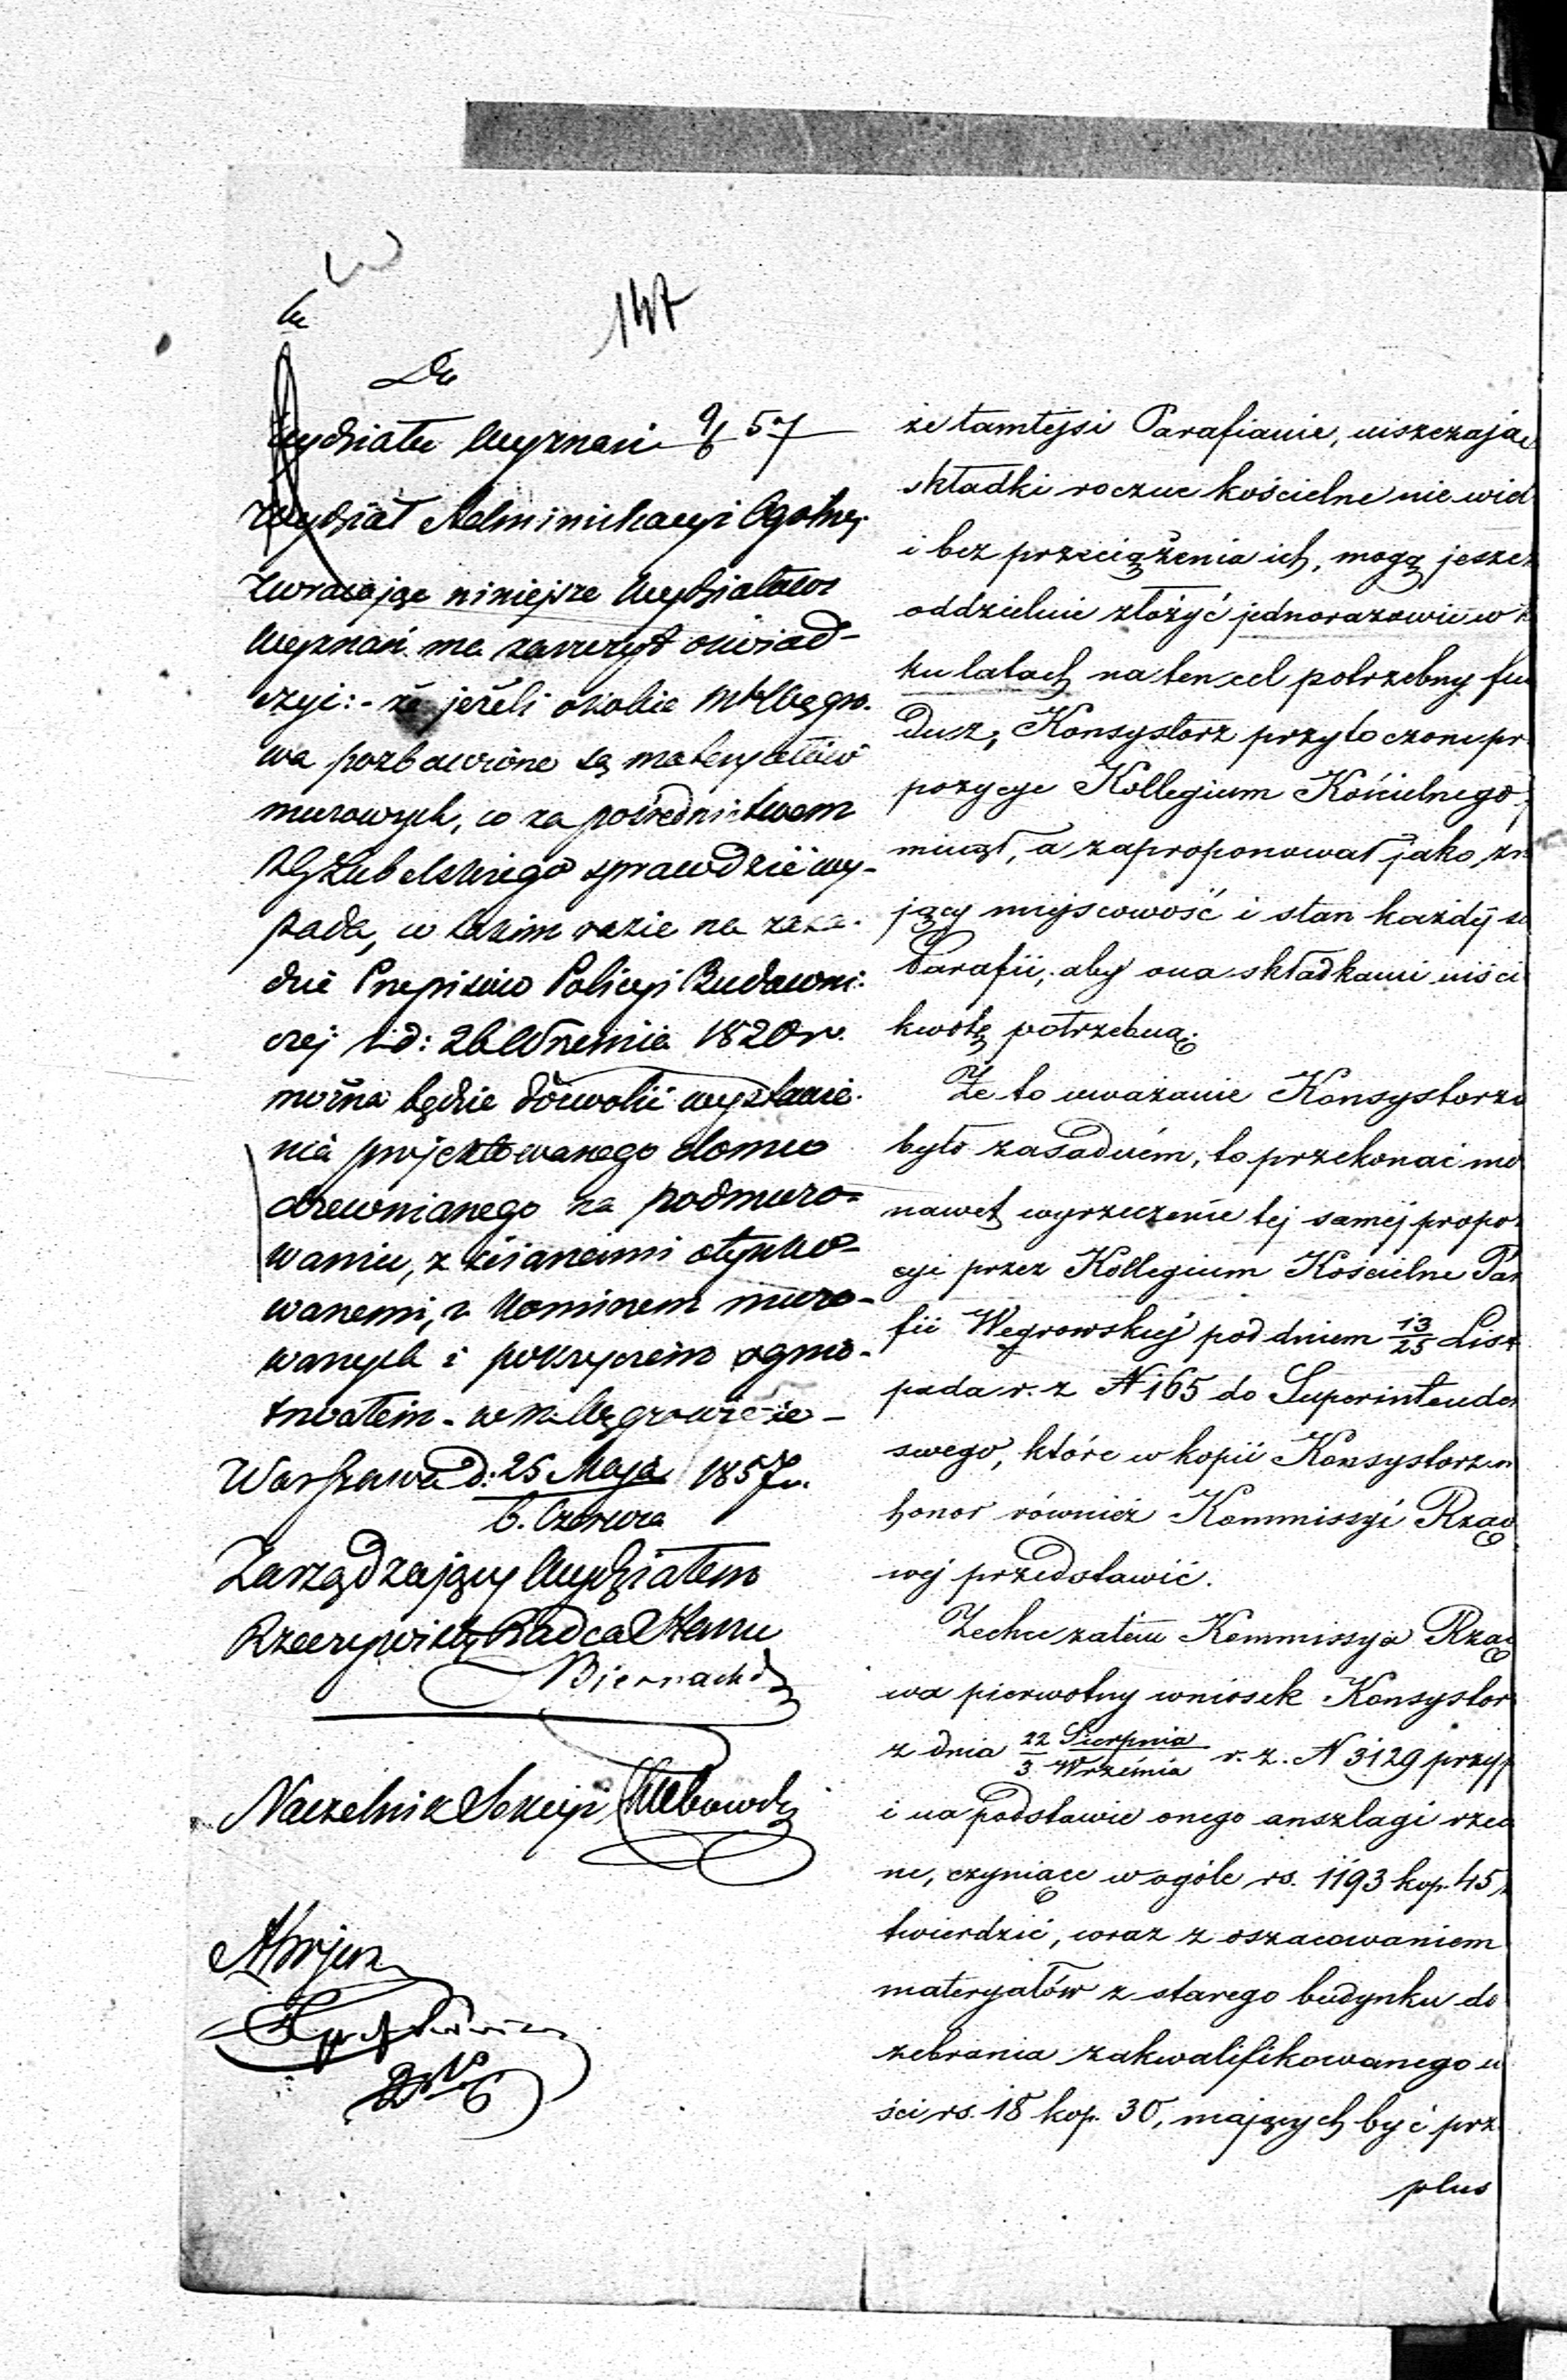 147
Do
Wydziału Wyznań 9/6 57
Wydział Administracyi Ogólnej
Zwracając niniejsze Wydziałowi
Wyznań ma zaszczyt oświad-
czyć:- że jeżeli okolice M Węgro-
wa pozbawione są materyałów
murowych, co za pośrednictwem
RG Lubelskiego sprawdzić wy-
pada, w takim razie na zasa-
dzie Przepisów Policyi Budowni-
czej z d: 26 Września 1820 r.
można będzie dozwolić wystawie-
nia projektowanego domu
drewnianego na podmuro-
waniu, z ścianami otynko-
wanemi, z kominem muro-
wanych i pokryciem ognio-
trwałem - w M. Węgrowie -
Warszawa d: 25 Maja 1857 r.
6. Czerwca
Zarządzający Wydziałem
Rzeczywisty Radca Stanu
Biernacki
Naczelnik Sekcyi
że tamtejsi Parafianie, uiszczając
składki roczne kościelne nie wiel
i bez przeciążenia ich, mogą jeszcz
oddzielnie złożyć jednorazowie w k
ku latach na ten cel potrzebny fu
dusz, Konsystorz przytoczone pr
pozycye Kollegium Kościelnego,
minął, a zaproponował jako zn
jący miejscowość i stan każdéj
Parafii, aby ona składkami uiści
kwotę potrzebną.
Że to uważanie Konsystorza
było zasadném, to przekonać mo
nawet wyrzeczenie tej saméj propo
cyi przez Kollegium Kościelne Par
fii Węgrowskiéj pod dniem 13/25 List
pada r. z N 165 do Superintenden
swego, które w kopii Konsystorz m
honor również Kommissyi Rząd
wej przedstawić.
Zechce zatém Kommissya Rząd
wa pierwotny wniosek Konsystor
z dnia 22 Sierpnia / 3 Września r. z. N 3129 przyj
i na podstawie onego anszlagi rzec
ne, czyniące w ogóle rs. 1193 kop. 45,
twierdzić, wraz z oszacowaniem
materyałów z starego budynku do
zebrania zakwalifikowanego w
ści rs. 18 kop. 30, mających być prz
plus